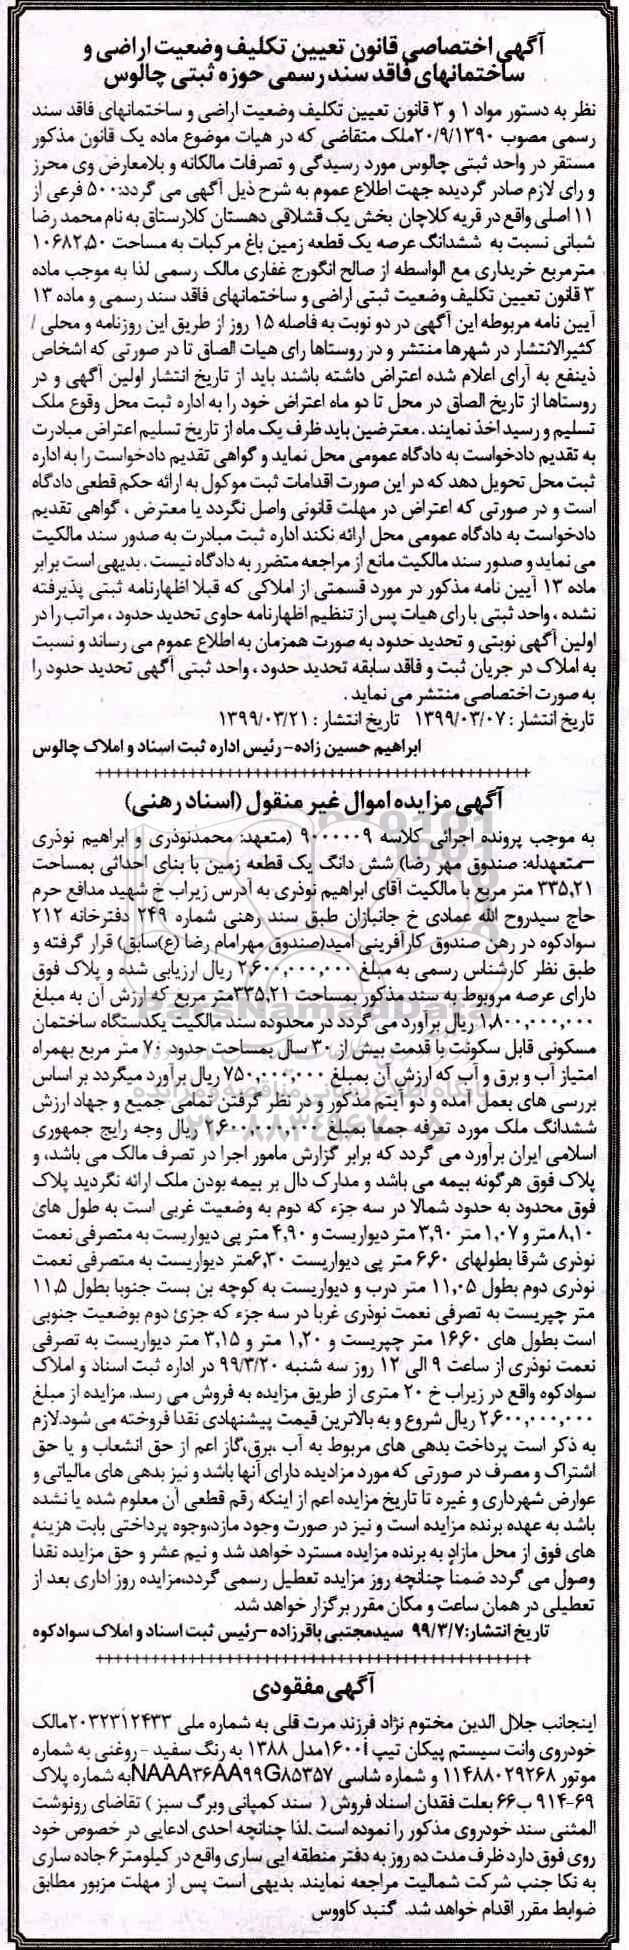 آگهی اختصاصی قانون تعیین تکلیف وضعیت اراضی و
ساختمانهای فاقد سند رسمی حوزه ثبتی چالوس
نظر به دستور مواد ۱ و ۳ قانون تعیین تکلیف وضعیت اراضی و ساختمانهای فاقد سند
رسمی مصوب ۲۰/۹/۱۳۹۰ملک متقاضی که در هیات موضوع ماده یک قانون مذکور
مستقر در واحد ثبتی چالوس مورد رسیدگی و تصرفات مالکانه و بلامعارض وی محرز
و رای لازم صادر گردیده جهت اطلاع عموم به شرح ذیل آگهی می گردد:۵۰۰ فرعی از
۱۱ اصلی واقع در قریه کلاچان بخش یک قشلاقی دهستان کلارستاق به نام محمد رضا
شبانی نسبت به ششدانگ عرصه یک قطعه زمین باغ مرکبات به مساحت ۱۰۶۸۲,۵۰
مترمربع خریداری مع الواسطه از صالح انگورج غفاری مالک رسمی لذا به موجب ماده
۳ قانون تعیین تکلیف وضعیت ثبتی اراضی و ساختمانهای فاقد سند رسمی و ماده ۱۳
آیین نامه مربوطه این آگهی در دو نوبت به فاصله ۱۵ روز از طریق این روزنامه و محلی /
کثیرالانتشار در شهرها منتشر و در روستاها رای هیات الصاق تا در صورتی که اشخاص
ذینفع به آرای اعلام شده اعتراض داشته باشند باید از تاریخ انتشار اولین آگهی و در
روستاها از تاریخ الصاق در محل تا دو ماه اعتراض خود را به اداره ثبت محل وقوع ملک
تسلیم و رسید اخذ نمایند . معترضین باید ظرف یک ماه از تاریخ تسلیم اعتراض مبادرت
به تقدیم دادخواست به دادگاه عمومی محل نماید و گواهی تقدیم دادخواست را به اداره
ثبت محل تحویل دهد که در این صورت اقدامات ثبت موکول به ارائه حکم قطعی دادگاه
است و در صورتی که اعتراض در مهلت قانونی واصل نگردد یا معترض ، گواهی تقدیم
دادخواست به دادگاه عمومی محل ارائه نکند اداره ثبت مبادرت به صدور سند مالکیت
می نماید و صدور سند مالکیت مانع از مراجعه متضرر به دادگاه نیست . بدیهی است برابر
ماده ۱۳ آیین نامه مذکور در مورد قسمتی از املاکی که قبلا اظهارنامه ثبتی پذیرفته
نشده ، واحد ثبتی با رای هیات پس از تنظیم اظهارنامه حاوی تحدید حدود ، مراتب را در
اولین آگهی نوبتی و تحدید حدود به صورت همزمان به اطلاع عموم می رساند و نسبت
به املاک در جریان ثبت و فاقد سابقه تحدید حدود ، واحد ثبتی آگهی تحدید حدود را
به صورت اختصاصی منتشر می نماید .
تاریخ انتشار : ۱۳۹۹/۰۳/۰۷ تاریخ انتشار : ۱۳۹۹/۰۳/۲۱
ابراهیم حسین زاده- رئیس اداره ثبت اسناد و املاک چالوس
آگهی مزایده اموال غیر منقول (اسناد رهنی)
به موجب پرونده اجرائی کلاسه ۹۰۰۰۰۰۹ (متعهد: محمدنوذری و ابراهیم نوذری
–متعهدله: صندوق مهر رضا) شش دانگ یک قطعه زمین با بنای احداثی بمساحت
۳۳۵,۲۱ متر مربع با مالکیت آقای ابراهیم نوذری به آدرس زیراب خ شهید مدافع حرم
حاج سیدروح الله عمادی خ جانبازان طبق سند رهنی شماره ۲۴۹ دفترخانه ۲۱۲
سوادکوه در رهن صندوق کارآفرینی امید(صندوق مهرامام رضا (ع)سابق) قرار گرفته و
طبق نظر کارشناس رسمی به مبلغ ۲,۶۰۰,۰۰۰,۰۰۰ ریال ارزیابی شده و پلاک فوق
دارای عرصه مروبوط به سند مذکور بمساحت ۳۳۵,۲۱متر مربع که ارزش آن به مبلغ
۱,۸۰۰,۰۰۰,۰۰۰ ریال برآورد می گردد در محدوده سند مالکیت یکدستگاه ساختمان
مسکونی قابل سکونت با قدمت بیش از ۳۰ سال بمساحت حدود ۷۰ متر مربع بهمراه
امتیاز آب و برق و آب که ارزش آن بمبلغ ۷۵۰,۰۰۰,۰۰۰ ریال برآورد میگردد بر اساس
بررسی های بعمل آمده و دو آیتم مذکور و در نظر گرفتن تمامی جمیع و جهاد ارزش
ششدانگ ملک مورد تعرفه جمعا بمبلغ ۲,۶۰۰,۰۰۰,۰۰۰ ریال وجه رایج جمهوری
اسلامی ایران برآورد می گردد که برابر گزارش مامور اجرا در تصرف مالک می باشد، و
پلاک فوق هرگونه بیمه می باشد و مدارک دال بر بیمه بودن ملک ارائه نگردید پلاک
فوق محدود به حدود شمالا در سه جزء که دوم به وضعیت غربی است به طول های
۸,۱۰ متر و ۱,۰۷ متر ۳,۹۰ متر دیواریست و ۴,۹۰ متر پی دیواریست به متصرفی نعمت
نوذری شرقا بطولهای ۶,۶۰ متر پی دیواریست ۶,۳۰متر دیواریست به متصرفی نعمت
نوذری دوم بطول ۱۱,۰۵ متر درب و دیواریست به کوچه بن بست جنوبا بطول ۱۱,۵
متر چپریست به تصرفی نعمت نوذری غربا در سه جزء که جزئ دوم بوضعیت جنوبی
است بطول های ۱۶,۶۰ متر چپریست و ۱,۲۰ متر و ۳,۱۵ متر دیواریست به تصرفی
نعمت نوذری از ساعت ۹ الی ۱۲ روز سه شنبه ۹۹/۳/۲۰ در اداره ثبت اسناد و املاک
سوادکوه واقع در زیراب خ ۲۰ متری از طریق مزایده به فروش می رسد. مزایده از مبلغ
۲,۶۰۰,۰۰۰,۰۰۰ ریال شروع و به بالاترین قیمت پیشنهادی نقداً فروخته می شود.لازم
به ذکر است پرداخت بدهی های مربوط به آب ،برق،گاز اعم از حق انشعاب و یا حق
اشتراک و مصرف در صورتی که مورد مزادیده دارای آنها باشد و نیز بدهی های مالیاتی و
عوارض شهرداری و غیره تا تاریخ مزایده اعم از اینکه رقم قطعی آن معلوم شده یا نشده
باشد به عهده برنده مزایده است و نیز در صورت وجود مازد،وجوه پرداختی بابت هزینه
های فوق از محل مازاد به برنده مزایده مسترد خواهد شد و نیم عشر و حق مزایده نقداً
وصول می گردد ضمناً چنانچه روز مزایده تعطیل رسمی گردد،مزایده روز اداری بعد از
تعطیلی در همان ساعت و مکان مقرر برگزار خواهد شد.
تاریخ انتشار:۹۹/۳/۷ سیدمجتبی باقرزاده –رئیس ثبت اسناد و املاک سوادکوه
آگهی مفقودی
اینجانب جلال الدین مختوم نژاد فرزند مرت قلی به شماره ملی ۲۰۳۲۳۱۲۴۳۳مالک
خودروی وانت سیستم پیکان تیپ ۱۶۰۰iمدل ۱۳۸۸ به رنگ سفید - روغنی به شماره
موتور ۱۱۴۸۸۰۲۹۲۶۸ و شماره شاسی NAAA۳۶AA۹۹G۸۵۳۵۷به شماره پلاک
۶۹-۹۱۴ ب۶۶ بعلت فقدان اسناد فروش ( سند کمپانی وبرگ سبز ) تقاضای رونوشت
المثنی سند خودروی مذکور را نموده است .لذا چنانچه احدی ادعایی در خصوص خود
روی فوق دارد ظرف مدت ده روز به دفتر منطقه ایی ساری واقع در کیلومتر۶ جاده ساری
به نکا جنب شرکت شمالیت مراجعه نمایند. بدیهی است پس از مهلت مزبور مطابق
ضوابط مقرر اقدام خواهد شد. گنبد کاووس
ParsNamadData